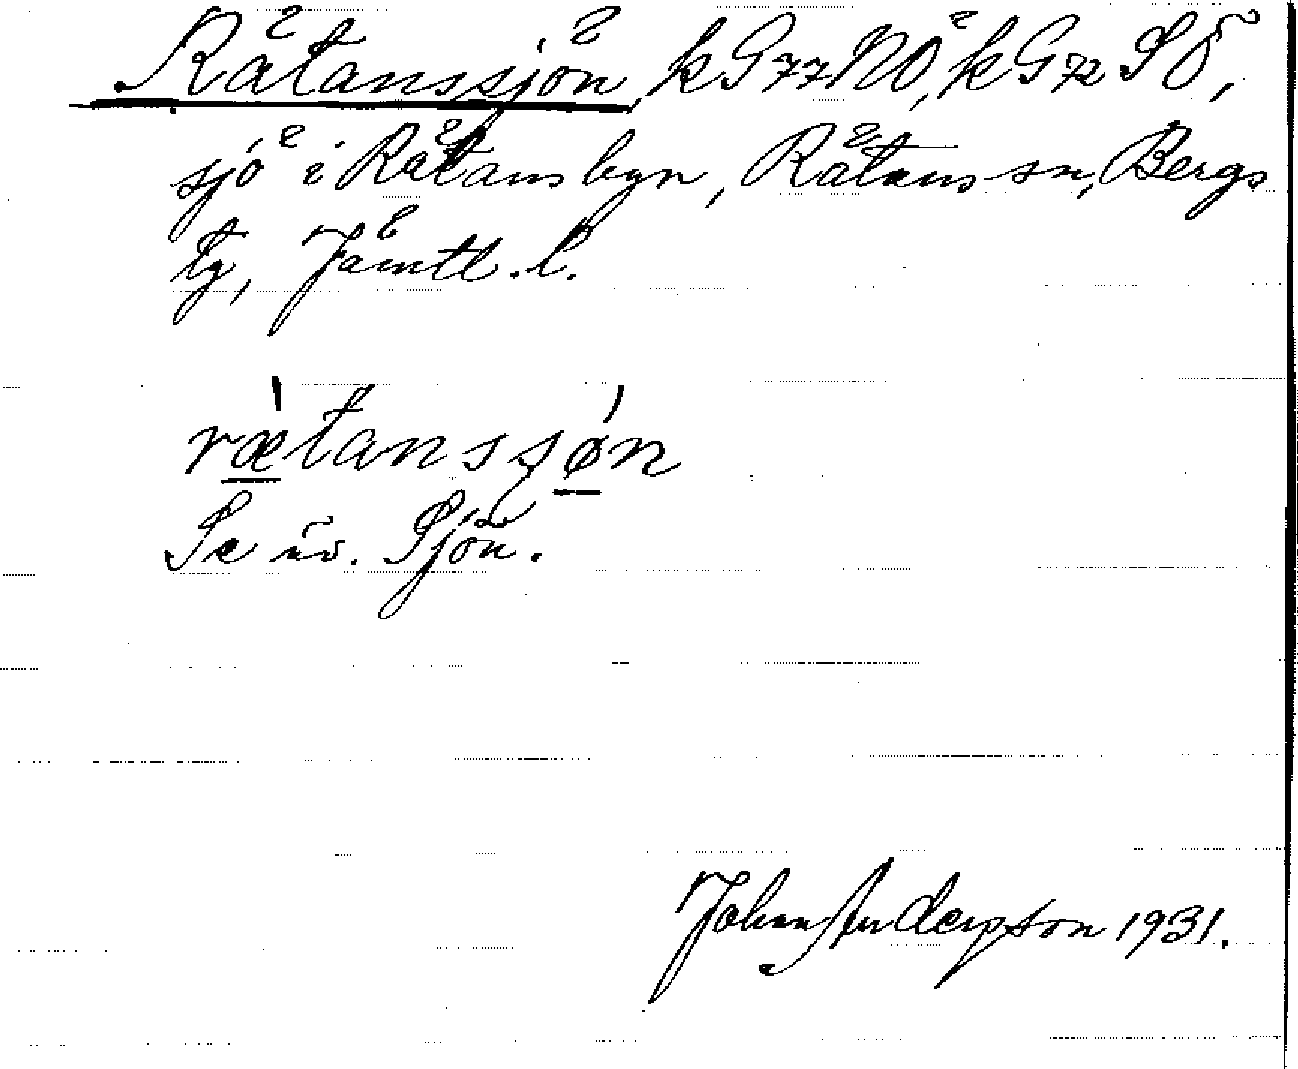 Rätanssjön, kG77NÖ, kG72SÖ,
sjö i Rätansbyn, Rätans sn, Bergs
tg, Jämtl. l.
rætanssjøn
Se äv. Sjön.
Johan Anderson 1931.